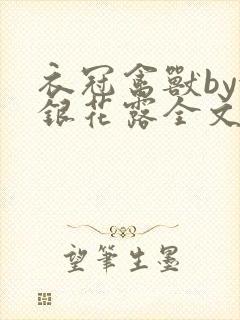 衣冠禽獸by
銀花露全文
望筆生墨